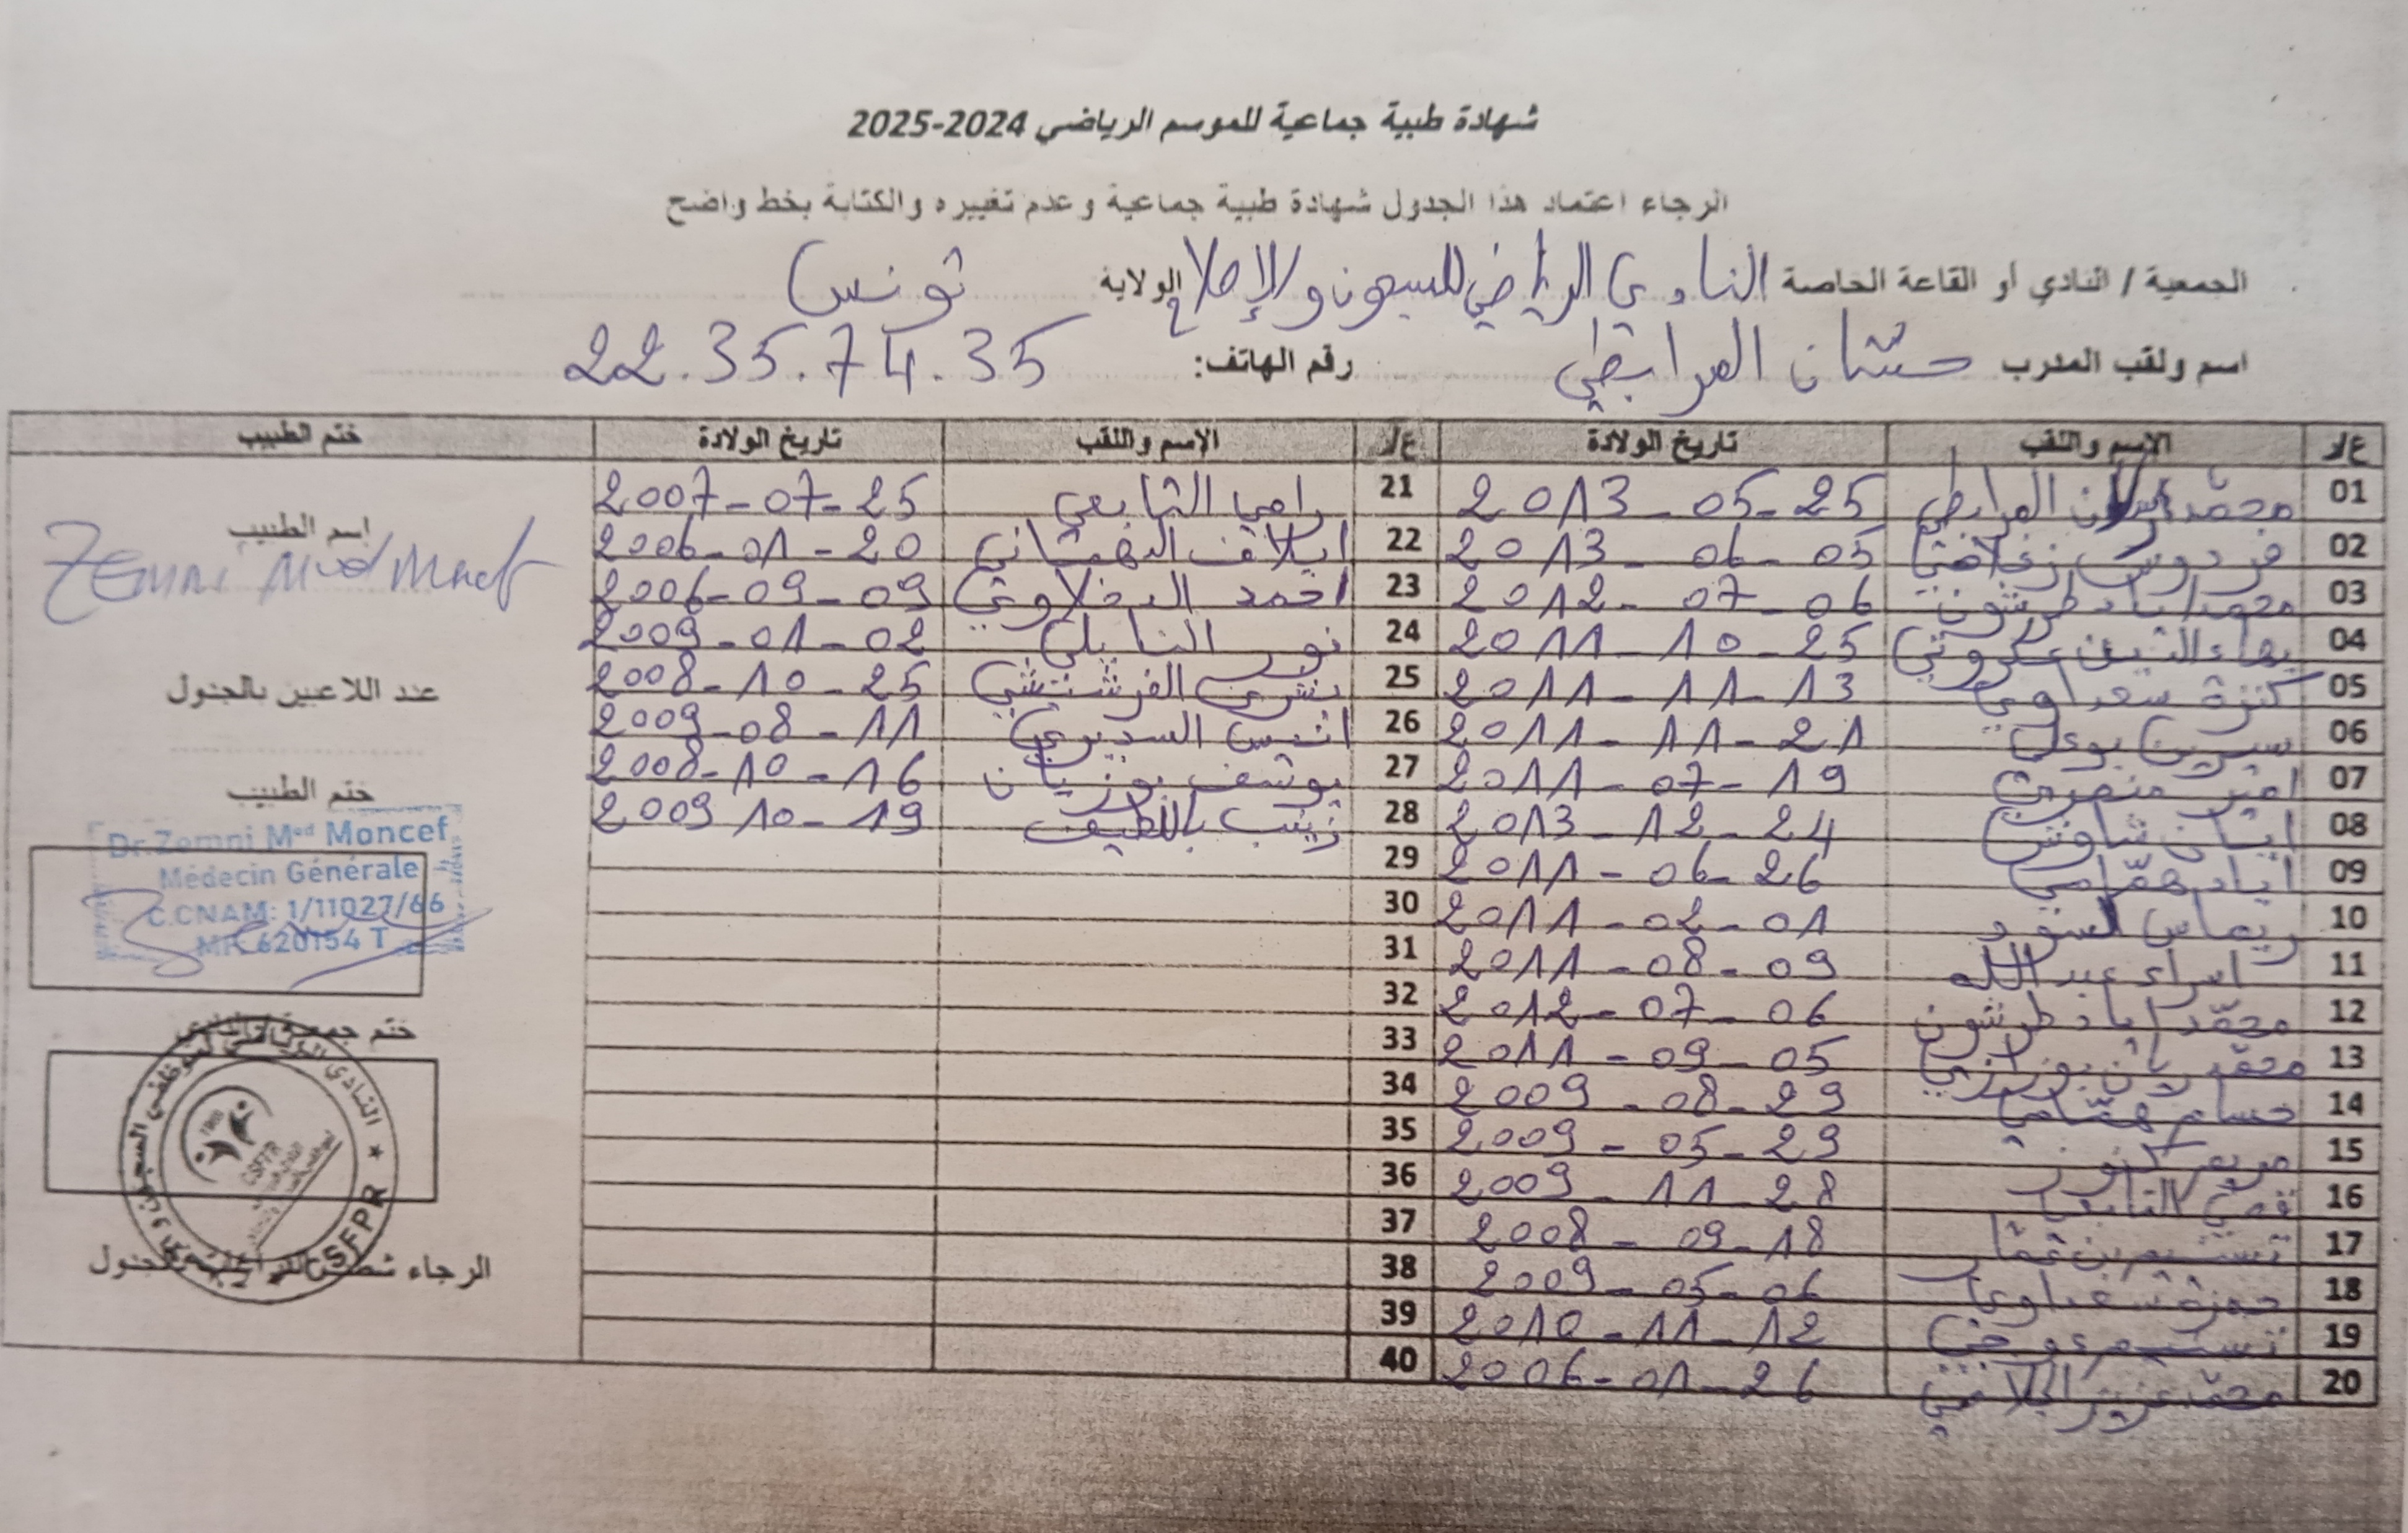 شهادة طبية جماعية للموسم الرياضي 2024-2025
الرجاء اعتماد هذا الجدول شهادة طبية جماعية وعدم تغييره والكتابة بخط واضح
الجمعية / النادي أو القاعة الخاصة النادي الرياضي للسجون والإصلاح الولاية تونس
اسم ولقب المدرب حسّان المرابطي رقم الهاتف: 22.35.74.35
ع/ر الاسم واللقب تاريخ الولادة ع/ر الاسم واللقب تاريخ الولادة ختم الطبيب
01 محمد المرابطي 2013-05-25 21 رامي التابعي 2007-07-25
02 فردوس 2013-06-05 22 ايلاف الدهماني 2006-01-20
03 محمد اياد طرشون 2012-07-06 23 احمد الدخلاوي 2006-09-09
04 بهاء الدين 2011-10-25 24 نور النايلي 2009-01-02
05 كنزة سعداوي 2011-11-13 25 بشرى الفرشيشي 2008-10-25
06 سيرين بوعلي 2011-11-21 26 انيس السديري 2009-08-11
07 امير منصري 2011-07-19 27 يوسف بوزيان 2008-10-16
08 شاوش 2013-12-24 28 زينب باللطيف 2009 10-19
09 اياد همّامي 2011-06-26 29
10 ريماس 2011-02-01 30
11 اسراء عبد الله 2011-08-09 31
12 محمّد اياد طرشون 2012-07-06 32
13 محمّد ريان 2011-09-05 33
14 حسام همّامي 2009-08-29 34
15 مريم 2009-05-29 35
16 قصي التابعي 2009-11-28 36
17 تسنيم بن عمار 2008-09-18 37
18 حمزة سعداوي 2009-05-06 38
19 تسنيم 2010-11-12 39
20 محمّد عزيز الجلاصي 2006-01-26 40
اسم الطبيب
Zemni Med Moncef
عند اللاعبين بالجدول
ختم الطبيب
Dr.Zemni Med Moncef
Médecin Générale
C.CNAM: 1/11027/66
MF: 620154 T
ختم جمعية/النادي
النادي الرياضي لموظفي السجون و
1980
CSFPR
CSFPR
الرجاء شطب بالجدول